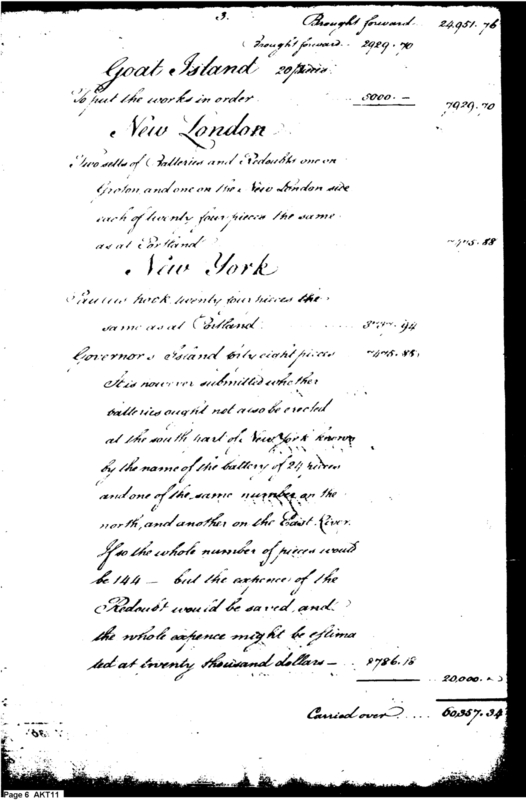 3.
Brought forward .. 24,951.76
Brought forward .. 2929.70
Goat Island 20 pieces
To put the works in order .. 5000.— 7929.70
New London
Two setts of Batteries and Redoubts one on
Groton and one on the New London side
each of twenty four pieces the same
as at Portland 7475.88
New York
Paulus hook, twenty four pieces the
same as at Portland 3737.94
Governor's Island forty eight pieces 7475.88
It is however submitted whether
batteries ought not also be erected
at the south part of New York known
by the name of the battery of 24 pieces
and one of the same number on the
north, and another on the East River.
If so the whole number of pieces would
be 144 — but the expence of the
Redoubt would be saved, and
the whole expence might be estima
ted at twenty thousand dollars — 8786.18
20,000.
Carried over .... 60,357.34
Page 6 AKT11